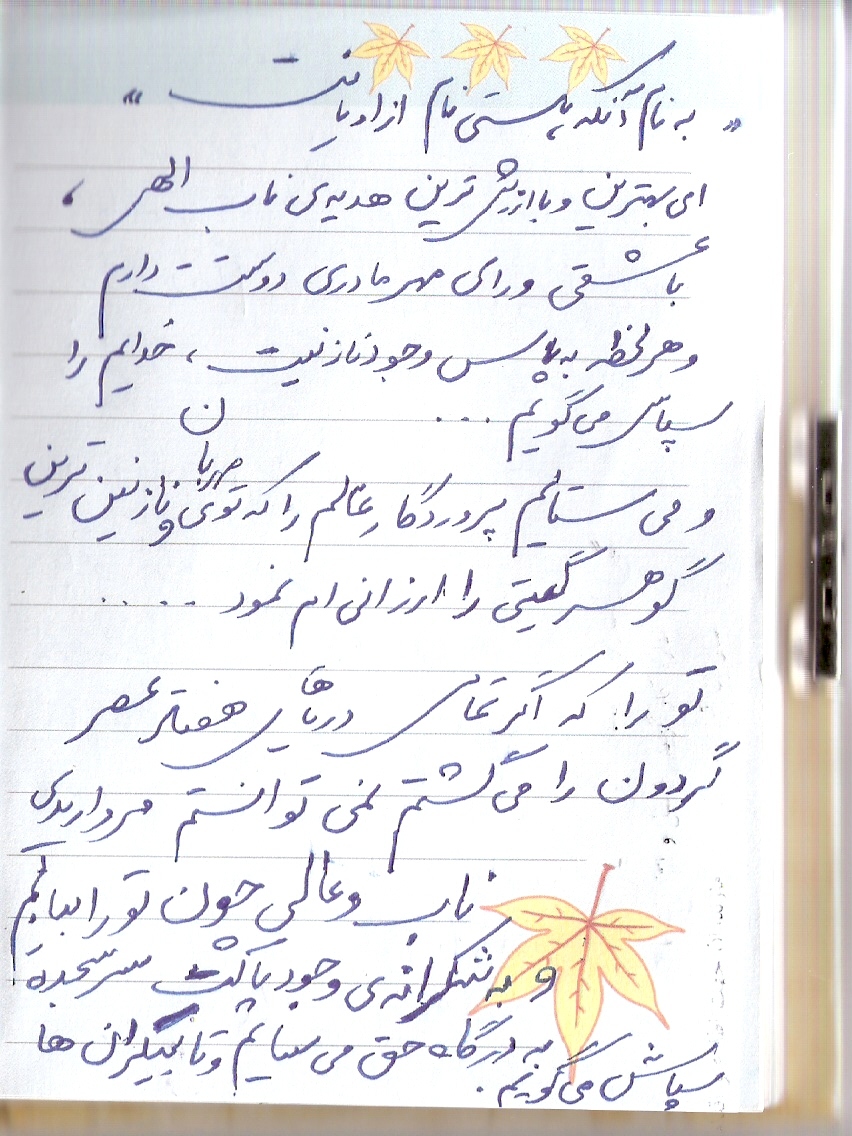 "به نام آنکه هستی نام از او یافت"
ای بهترین و باارزش ترین هدیه‌ی ناب الهی،
با عشقی ورای مهر مادری دوستت دارم
و هر لحظه به پاس وجود نازنینت، خدایم را
سپاس می گویم ...
و می ستایم پروردگار عالم را که توی مهربان و نازنین ترین
گوهر گیتی را ارزانی ام نمود .....
تو را که اگر تمامی دریاهای هفت
گردون را می گشتم نمی توانستم مرواریدی
ناب و عالی چون تو را بیابم
و به شکرانه‌ی وجود پاکت سر سجده
به درگاه حق می سایم و تا بیکران ها
سپاسش می گویم.